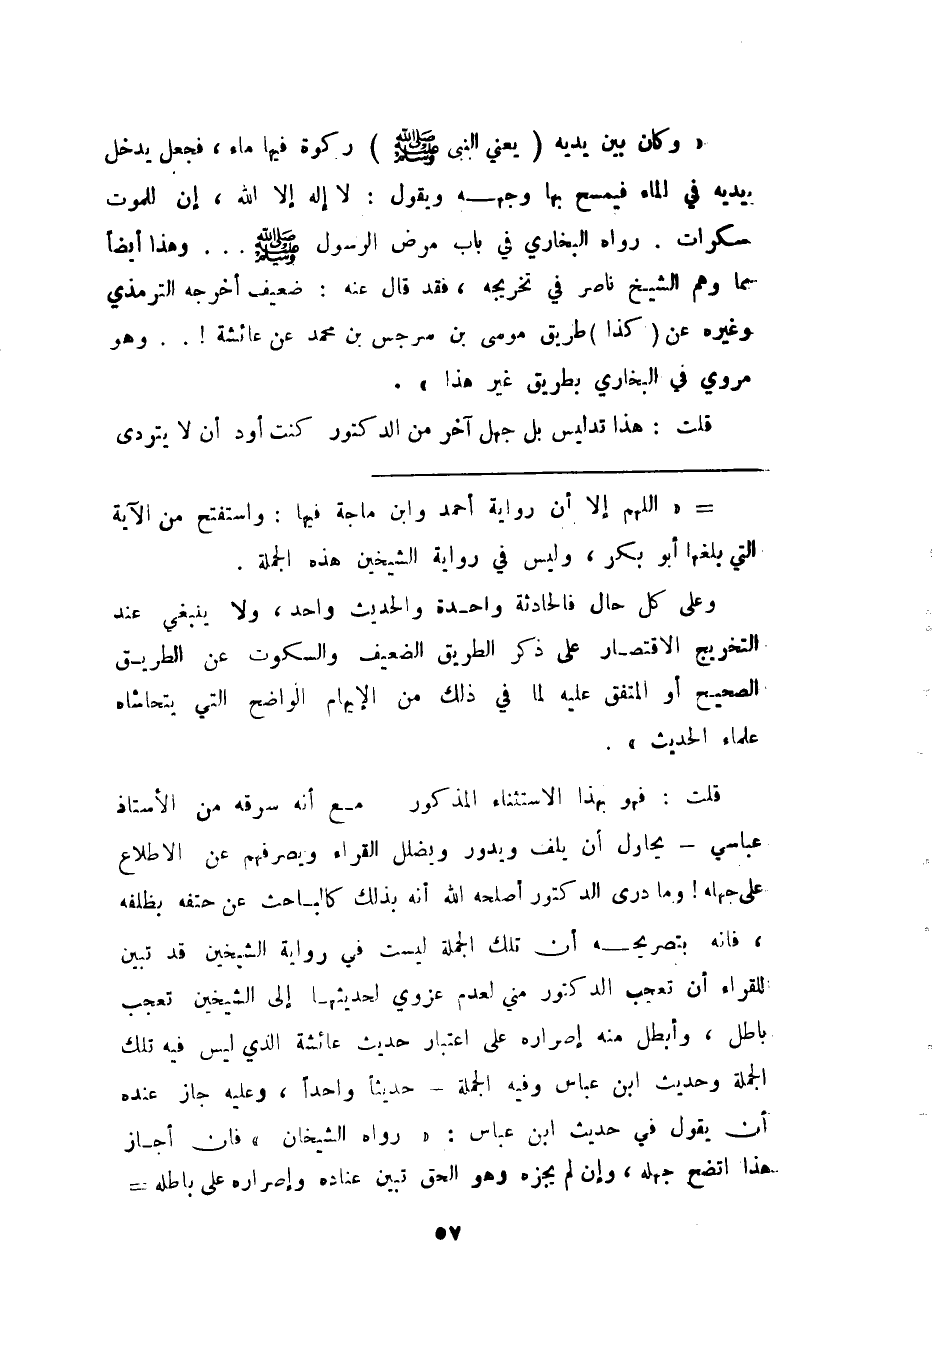 « وكان بين يديه ( يعني النبي ﷺ ) ركوة فيها ماء ، فجعل يدخل
يديه في الماء فيمسح بها وجهـــه ويقول : لا إله إلا الله ، إن للموت
سكرات . رواه البخاري في باب مرض الرسول ﷺ . . . وهذا أيضاً
مما وهم الشيخ ناصر في تخريجه ، فقد قال عنه : ضعيف أخرجه الترمذي
وغيره عن ( كذا ) طريق موسى بن سرجس بن محمد عن عائشة ! . . وهو
مروي في البخاري بطريق غير هذا » .
قلت : هذا تدليس بل جهل آخر من الدكتور كنت أود أن لا يتردى
= « اللهم إلا أن رواية أحمد وابن ماجة فيها : واستفتح من الآية
التي بلغها أبو بكر ، وليس في رواية الشيخين هذه الجملة .
وعلى كل حال فالحادثة واحـدة والحديث واحد ، ولا ينبغي عند
التخريج الاقتصـار على ذكر الطريق الضعيف والسكوت عن الطريـق
الصحيح أو المتفق عليه لما في ذلك من الإيهام الواضح التي يتحاشاه
علماء الحديث » .
قلت : فهو بهذا الاستثناء المذكور مـع أنه سرقه من الأستاذ
عباسي – يحاول أن يلف ويدور ويضلل القراء ويصرفهم عن الاطلاع
على جهله ! وما درى الدكتور أصلحه الله أنه بذلك كالبـاحث عن حتفه بظلفه
، فانه بتصريحـــه أن تلك الجملة ليست في رواية الشيخين قد تبين
للقراء أن تعجب الدكتور مني لعدم عزوي لحديثهـا إلى الشيخين تعجب
باطل ، وأبطل منه إصراره على اعتبار حديث عائشة الذي ليس فيه تلك
الجملة وحديث ابن عباس وفيه الجملة – حديثاً واحداً ، وعليه جاز عنده
أن يقول في حديث ابن عباس : « رواه الشيخان » فان أجـاز
هذا اتضح جهله ، وإن لم يجزه وهو الحق تبين عناده وإصراره على باطله =
٥٧